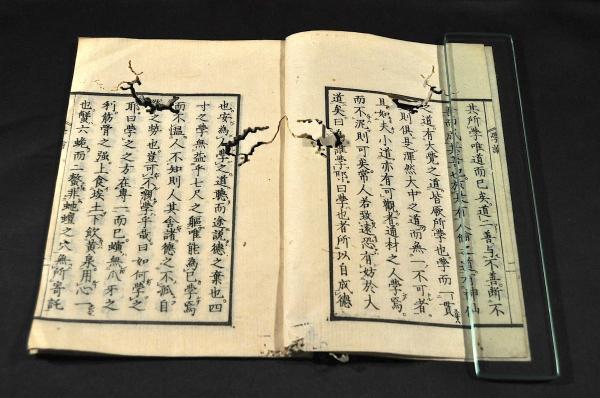 其所學唯道而已矣道一善与不善斷不
有人倫之道有神仙
道有大覺之道皆厥所學也學而一貫
則俱為渾然大中之道而無一不可者
且如夫小道亦有可觀者道材之人學焉
而不泥則可矣常人若致遠恐有妨於大
道矣曰誰學耶曰學也者所以自成德
也安為人學之道聽而途說德之棄也四
寸之學無益乎七尺之軀唯能為己學焉
而不慍人不知則人其舍諸德之不孤自
之勞也豈可不願學乎哉曰如何學之
耶曰學之之方在專一而已螾無爪牙之
利筋骨之强上食埃土下飲黃泉用心一
也蟹六跪而二螯非虵蟺之穴無所寄託